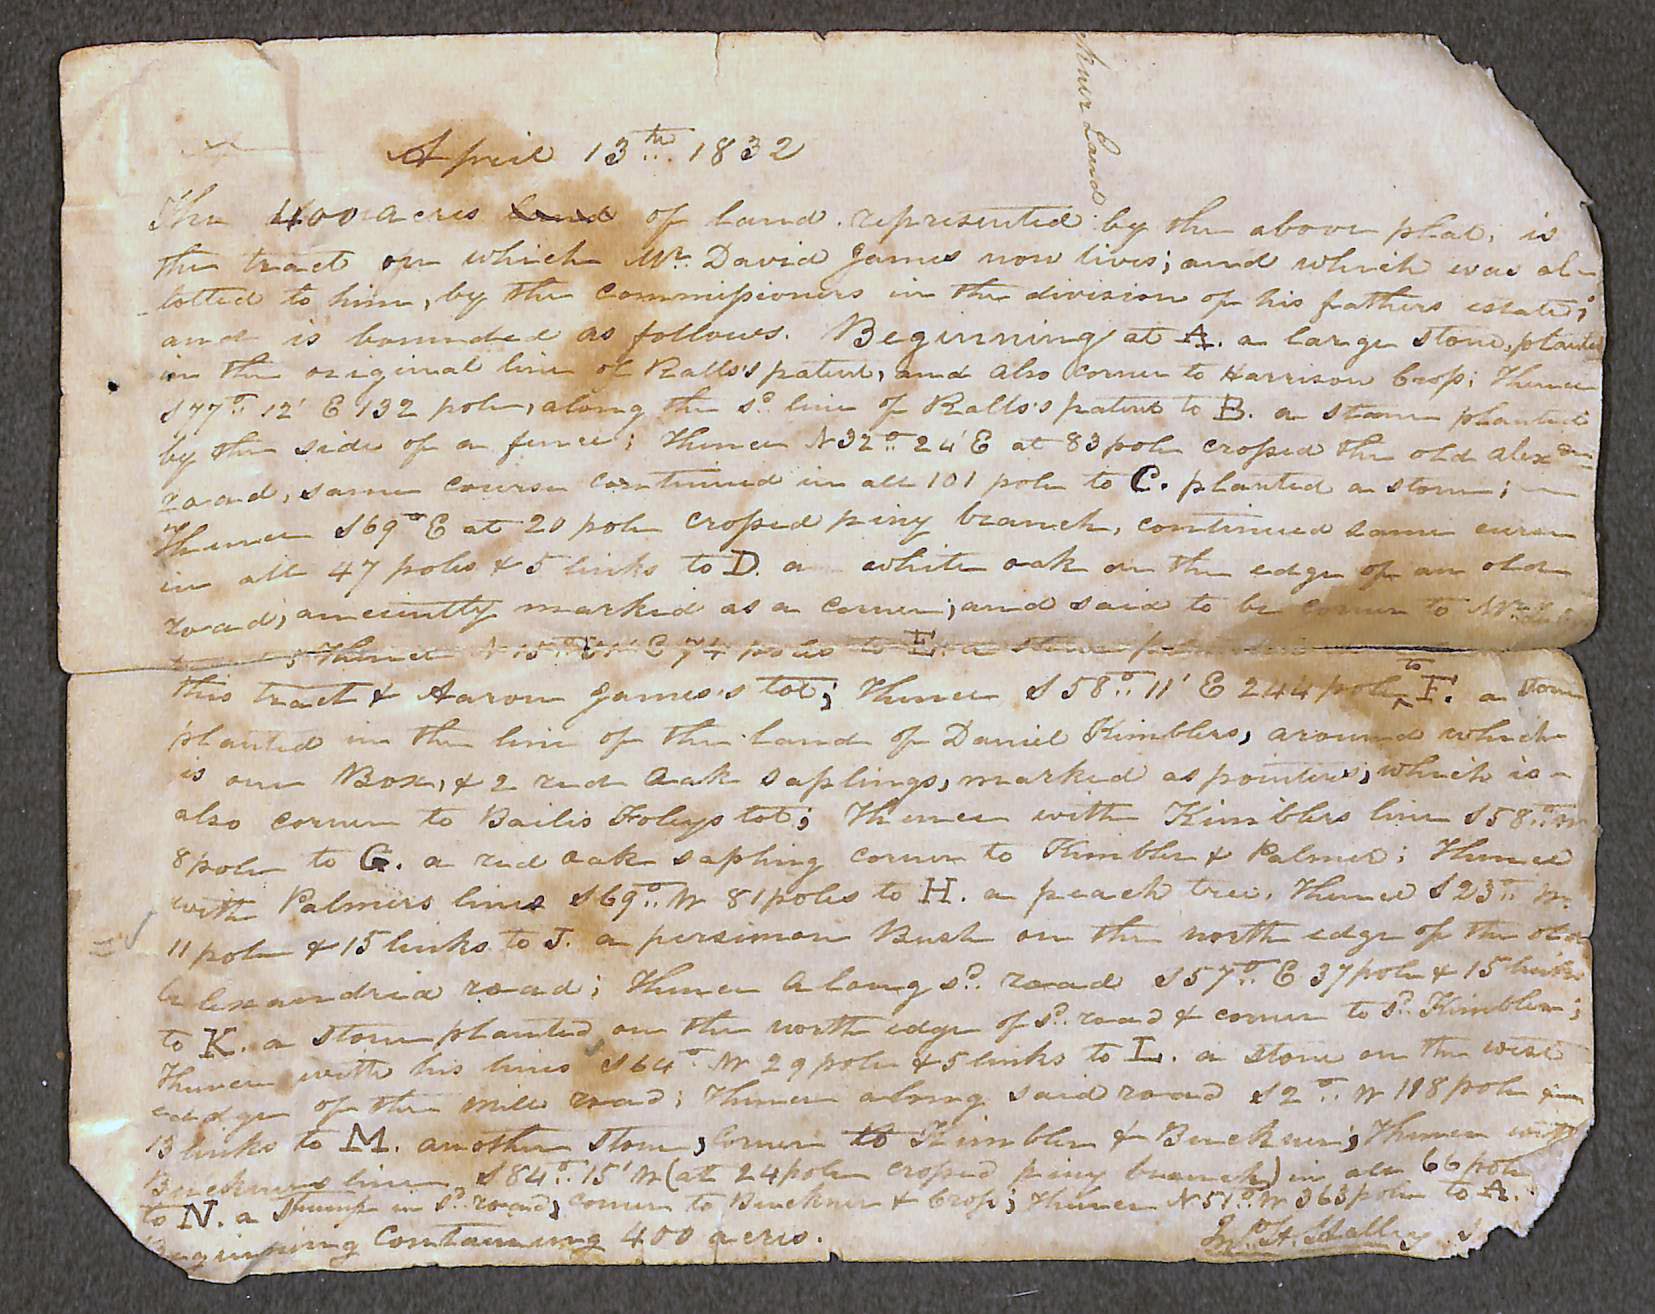 kner Land
April 13th 1832
The 400 acres land of land represented by the above plat, is
the tract on which Mr. David James now lives; and which was al-
lotted to him, by the commissioners in the division of his fathers estate;
and is bounded as follows. Beginning at A. a large stone, planted
in the original line of Ralls's patent, and also corner to Harrison Crop; Thence
S 77° 12' E 132 pole, along the sd. line of Ralls's patent to B. a stone planted
by the side of a fence; Thence N 32° 24' E at 83 pole crossed the old Alexdra
road, same course continued in all 101 pole to C. planted a stone;
Thence S 69° E at 20 pole crossed piny branch, continued same curse
in all 47 poles & 5 links to D. a white oak on the edge of an old
road, anciently marked as a corner; and said to be corner to Mr.
; Thence N 15° E 74 poles to E. a stone
this tract & Aaron James's lot; Thence S 58° 11' E 244 pole to F. a stone
planted in the line of the land of Daniel Kimblers, around which
is one Box, & 2 red Oak saplings, marked as pointers, which is
also corner to Bailis Foleys lot; Thence with Kimblers line S 58° W
8 pole to G. a red oak sapling corner to Kimbler & Palmer; Thence
with Palmers lines S 69° W 81 poles to H. a peach tree, Thence S 23° W.
11 pole & 15 links to J. a persimon Bush on the north edge of the old
Alexandria road; Thence Along sd. road S 57° E 37 pole & 15 links
to K. a stone planted on the north edge of sd. road & corner to sd. Kimbler;
Thence with his lines S 64° W 29 pole & 5 links to L. a stone on the west
edge of the mill road; Thence along said road S 2° W 118 pole and
13 links to M. another stone, corner to Kimbler & Buckner; Thence with
Buckners line S 84° 15' W (at 24 pole crossed piny branch) in all 66 pole
to N. a stump in sd. road, corner to Buckner & Crop; Thence N 51° W 363 pole to A.
Beginning Containing 400 acres.
Jno. H. Halley S